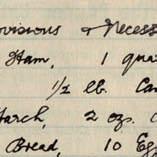 ovisions & Necess
Ham, 1 qua
1/2 lb. Ca
tarch, 2 ozs.
Bread, 10 Eg